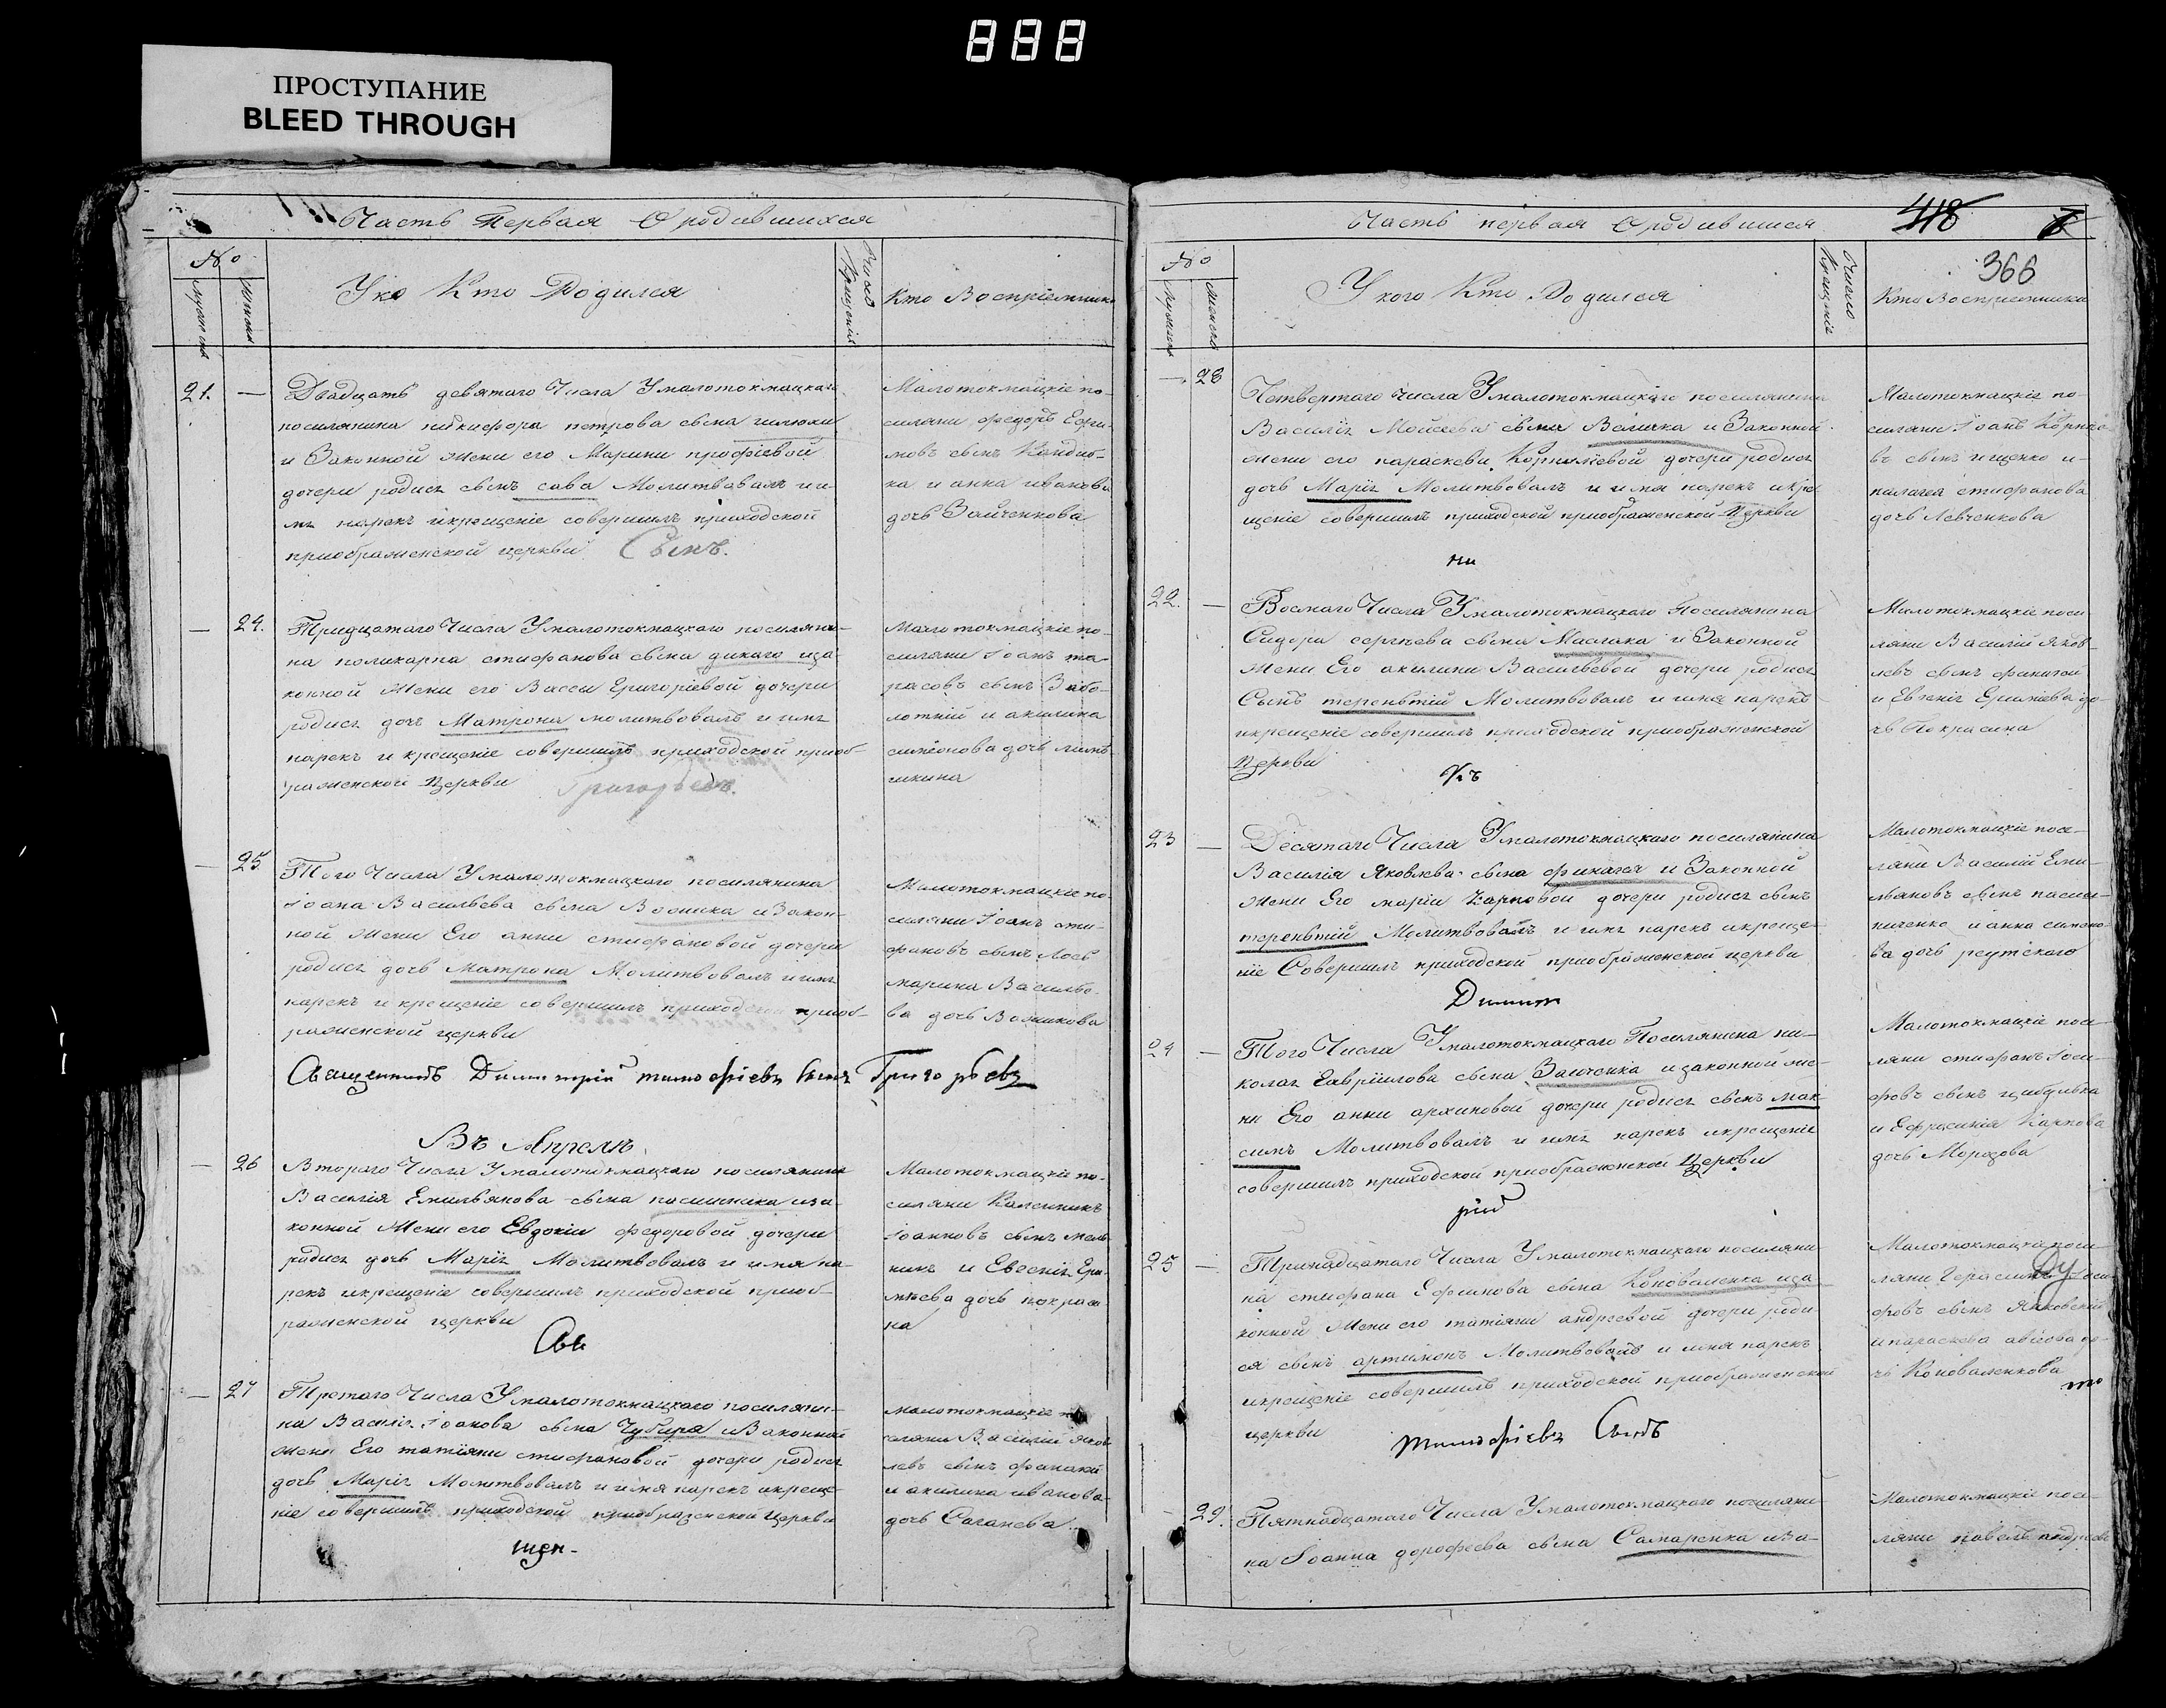 888
ПРОСТУПАНИЕ
BLEED THROUGH
Часть Первая О родившихся
№
Уко Кто Родился
Число крещенія
Кто Воспріемники
21. —
Двадцать девятаго Числа Умалотокмацкаго
поселянина никифора петрова сына
и Законной жени его Марини профіевой
дочери родися сынъ сава Молитвовалъ и и-
мя нарекъ икрещеніе совершилъ приходской
приображенской церкви Сынъ.
Малотокмацкіе по-
селяни федоръ Ефи-
мовъ сынъ Кандиб-
ка и анна иванова
дочь Зайченкова
— 24.
Тридцатаго Числа Умалотокмацкаго поселяни-
на поликарпа стефанова сына дикаго иза-
конной жени его Васси Григоріевой дочери
родися дочь Матрона молитвовалъ и имя
нарекъ и крещеніе совершилъ приходской приоб-
раженской Церкви Григорьевъ.
Малотокмацкіе по-
селяни Іоанъ та-
расовъ сынъ Забо-
лотній и акилина
симіонова дочь
— 25
Того Числа Умалотокмацкаго поселянина
Іоана Васильева сына Возника и Закон-
ной жени Его анни стефановой дочери
родися дочь Матрона Молитвовалъ и имя
нарекъ и крещеніе совершилъ приходской приоб-
раженской церкви
Малотокмацкіе по-
селяни Іоанъ сте-
фановъ сынъ Лось
марина Василье-
ва дочь Возникова
Священникъ Димитрій тимофіевъ Сынъ Григорьевъ
Въ Апрелѣ
— 26
Втораго Числа Умалотокмацкаго поселянина
Василія Емильянова сына пасишника иза-
конной жени его Евдокіи федоровой дочери
родися дочь Марія Молитвовалъ и имя на-
рекъ икрещеніе совершилъ приходской приоб-
раженской церкви
Свя
Малотокмацкіе по-
селяни Каленикъ
Іоанновъ сынъ мель
никъ и Евгенія Ере-
мѣева дочь покраси
на
— 27
Третаго Числа Умалотокмацкаго поселяни-
на Василія Іоанова сына Чубиря и Законной
жени Его татіяни стефановой дочери родися
дочь Марія Молитвовалъ и имя нарекъ икреще-
ніе совершилъ приходской приображенской Церкви
щен-
малотокмацкіе по
селяни Василій яков
левъ сынъ финагей
и акилина иванова
дочь Саганева
Часть первая О родившися
418
366
№
У кого Кто Родился
Число крещеніе
Кто Воспріемники
— 28
Четвертаго Числа Умалотокмацкаго поселянина
Василія Мойсеева сына Величка и Законной
жени его параскеви Корниліевой дочери родися
дочь Марія Молитвовалъ и имя нарекъ икре
щеніе совершилъ приходской приображенской Церкви
ни
Малотокмацкіе по-
селяни Іоанъ Корніе
въ сынъ ищенко и
палагея стефанова
дочь Левченкова
22. —
Восмаго Числа Умалотокмацкаго Поселянина
Сидора сергѣева сына Маслака и Законной
жени Его акилини Васильевой дочери родися
Сынъ терентій Молитвовалъ и имя нарекъ
икрещеніе совершилъ приходской приображенской
Церкви
къ
Малотокмацкіе посе
ляни Василій Яков-
левъ сынъ финагей
и Евгенія Еримѣева до
чь Покрасина
23 —
Десятаго Числа Умалотокмацкаго поселянина
Василія Яковлева сына финагея и Законной
жени Его маріи Карповой дочери родися сынъ
терентій Молитвовалъ и имя нарекъ икреще-
ніе Совершилъ приходской приображенской церкви
Димит
Малотокмацкіе посе-
ляни Василій Еми-
льяновъ сынъ пасеш-
ниченко и анна симоно-
ва дочь реутского
24 —
Того Числа Умалотокмацкаго Поселянина ни-
колая Гавріилова сына Заиченка изаконной же-
ни Его анни архиповой дочери родися сынъ мак-
симъ Молитвовалъ и имя нарекъ икрещеніе
совершилъ приходской приображенской Церкви
рій
Малотокмацкіе посе-
ляни стефанъ Іоси-
фовъ сынъ цибулька
и Ефросинія Карпова
дочь Морозова
25 —
Тринадцатаго Числа Умалотокмацкаго поселяни-
на стефана Ефимова сына Коноваленка иза-
конной жени его татіяни андреевой дочери роди-
ся сынъ артимонъ Молитвовалъ и имя нарекъ
икрещеніе совершилъ приходской приображенской
церкви
тимофіевъ Сынъ
Малотокмацкіе посе-
ляни Герасимъ Іоси
фовъ сынъ Янковскій
ипараскева
чь Коноваленкова
— 29.
Пятнадцатаго Числа Умалотокмацкаго поселяни-
на Іоанна дорофеева сына Самаренка иза-
Малотокмацкіе посе-
ляни павелъ андреев